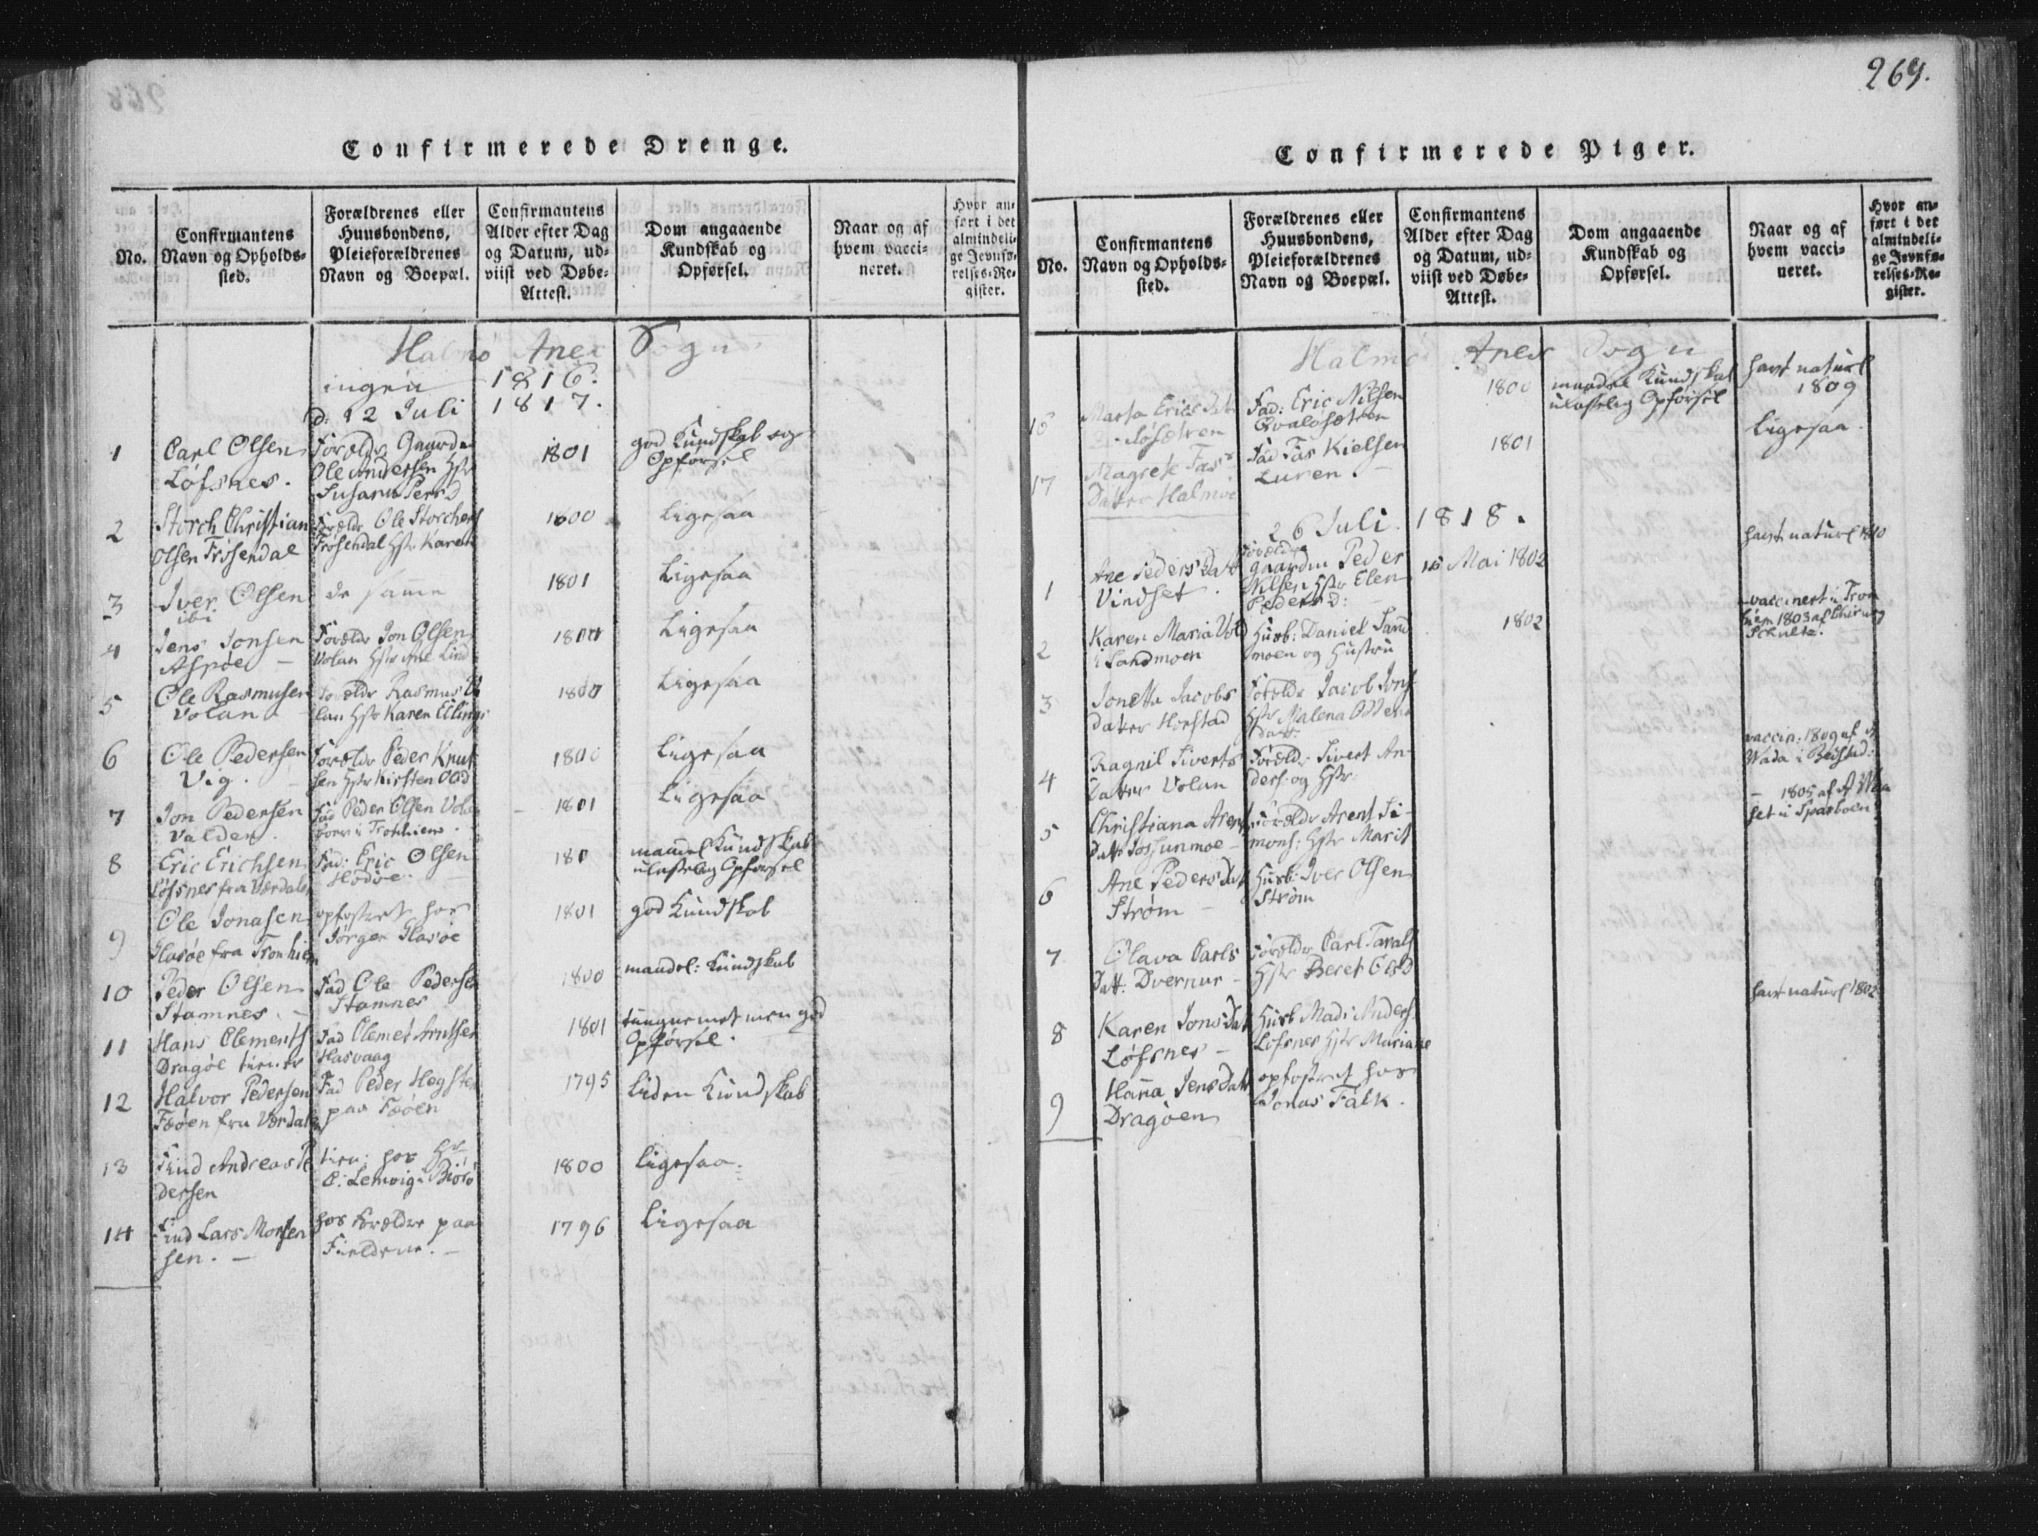 Confirmerede Drenge.
No.
Confirmantens
Navn og Opholds-
sted.
Forældrenes eller
Huusbondens,
Pleieforældrenes
Navn og Boepæl.
Confirmantens
Alder efter Dag
og Datum, ud-
viist ved Døbe-
Attest.
Dom angaaende
Kundskab og
Opførsel.
Naar og af
hvem vacci-
neret.
Hvor an-
ført i det
almindeli-
ge Jevnfø-
relses-Re-
gister.
Halmø Anex Sogn
ingen 1816.
d: 12 Juli 1817.
1 Carl Olsen
Løfsnes.
Forældr Gaardm
Ole Andersen Hstr
Susana Persd
1801
god Kundskab og
Opførsel
2 Storch Christian
Olsen Frøsendal
Forældr Ole Storchers
Frøsendal Hstr Karen
1800
Ligesaa
3 Iver Olsen
ibi
de samme
1801
Ligesaa
4 Jens Jonsen
Aspøe
Forældr Jon Olsen
Volan Hstr Ane Lind
1800
Ligesaa
5 Ole Rasmusen
Volan
Forældr Rasmus Vo
lan Hstr Karen Ellings
1800
Ligesaa
6 Ole Pedersen
Vig.
Forældr Peder Knut
sen Hstr Kirsten Olsd
1800
Ligesaa
7 Jon Pedersen
Valden.
Fad Peder Olsen Vola
i Tronhiem.
1801
Ligesaa
8 Eric Erichsen
Løfsnes fra Værdalen
Fad: Eric Olsen
Hodøe.
180
maadel Kundskab
ulastelig Opførsel
9 Ole Jonasen
Hasøe fra Tronhiem
opfostret hos
Jørgen Hasøe
1801
god Kundskab
10 Peder Olsen
Stamnes.
Fad Ole Pedersen
Stamnes
1800
maadel: Kundskab
11 Hans Clements
Dragøe tiener
Fad Clemet Arntsen
Hasvaag
1801
tungnemet men god
Opførsel.
12 Halvor Pedersen
Fæøen fra Værdalen
Fad Peder Hegsten
paa Fæøen
1795
Liden Kundskab
13 Find Andreas Pe
dersen
tien: hos Hr
C: Lemvig Biørø
1800
Ligesaa.
14 Find Lars Morten
sen.
hos Forældre paa
Fieldene.
1796
Ligesaa
269.
Confirmerede Piger.
No.
Confirmantens
Navn og Opholds-
sted.
Forældrenes eller
Huusbondens,
Pleieforældrenes
Navn og Boepæl.
Confirmantens
Alder efter Dag
og Datum, ud-
viist ved Døbe-
Attest.
Dom angaaende
Kundskab og
Opførsel.
Naar og af
hvem vacci-
neret.
Hvor an-
ført i det
almindeli-
ge Jevnfø-
relses-Re-
gister.
Halmø Anex Sogn
16 Marta Erics Dat
Fad: Eric Nilsen
Qvaløsætren
1800
maadel Kundskab
ulastelig Opførsel
havt naturl
1809
17 Magrete Fas
Datter Halmøe
Fad Fas Kielsen
Luren.
1801
Ligesaa.
26 Juli. 1818.
1 Ane Peders Datt
Vindset.
Forældr
Gaardm Peder
Nilsen Hstr Elen
Pedersd:
15 Mai 1802
havt naturl 1810
2 Karen Maria Vol
i Sandmoen
Husb: Daniel Sand
moen og Hustru
1802
vaccinert i Tron
hiem 1803 af Chirurg
Schultz.
3 Jonetta Jacobs
dater Horstad
Forældr Jacob Jons
Hstr Malena Otters
datt.
4 Ragnil Siverts
Datter Volan
Forældr Sivert An
ders og Hstr
vaccin: 1809 af
Wada i Beitstad:
5 Christiana Arents
Datt Josjunmoe
Forældr Arent Si-
mons: Hstr Marit
1805 af
set i Sparboen
6 Ane Peders Datt
Strøm
Husb: Iver Olsen
Strøm
7 Olava Carls
Datt. Dvernur
Forældr Carl Taralds
Hstr Beret Olsd
8 Karen Jons Dat
Løfsnes
Husb Mads Anders.
Løfsnes Hstr Mariane
havt naturl 1802
9 Hana Jens datt
Dragøen
opfostret hos
Jonas Falk.